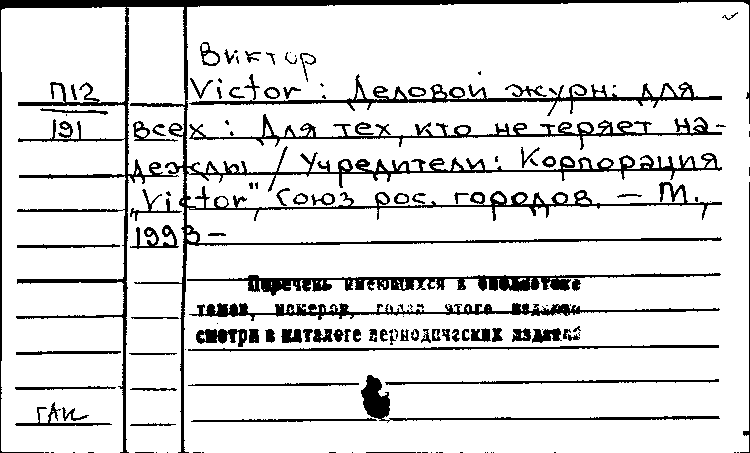 Виктор
П12 Victor : Деловой журн. для
191 всех : Для тех, кто не теряет на-
дежды / Учредители: Корпорация
„Victor", Союз рос. городов. – М.,
1993 –
Перечень имеющихся в библиотеке
томов, номеров, годов этого издания
смотри в каталоге периодических изданий
ГАК